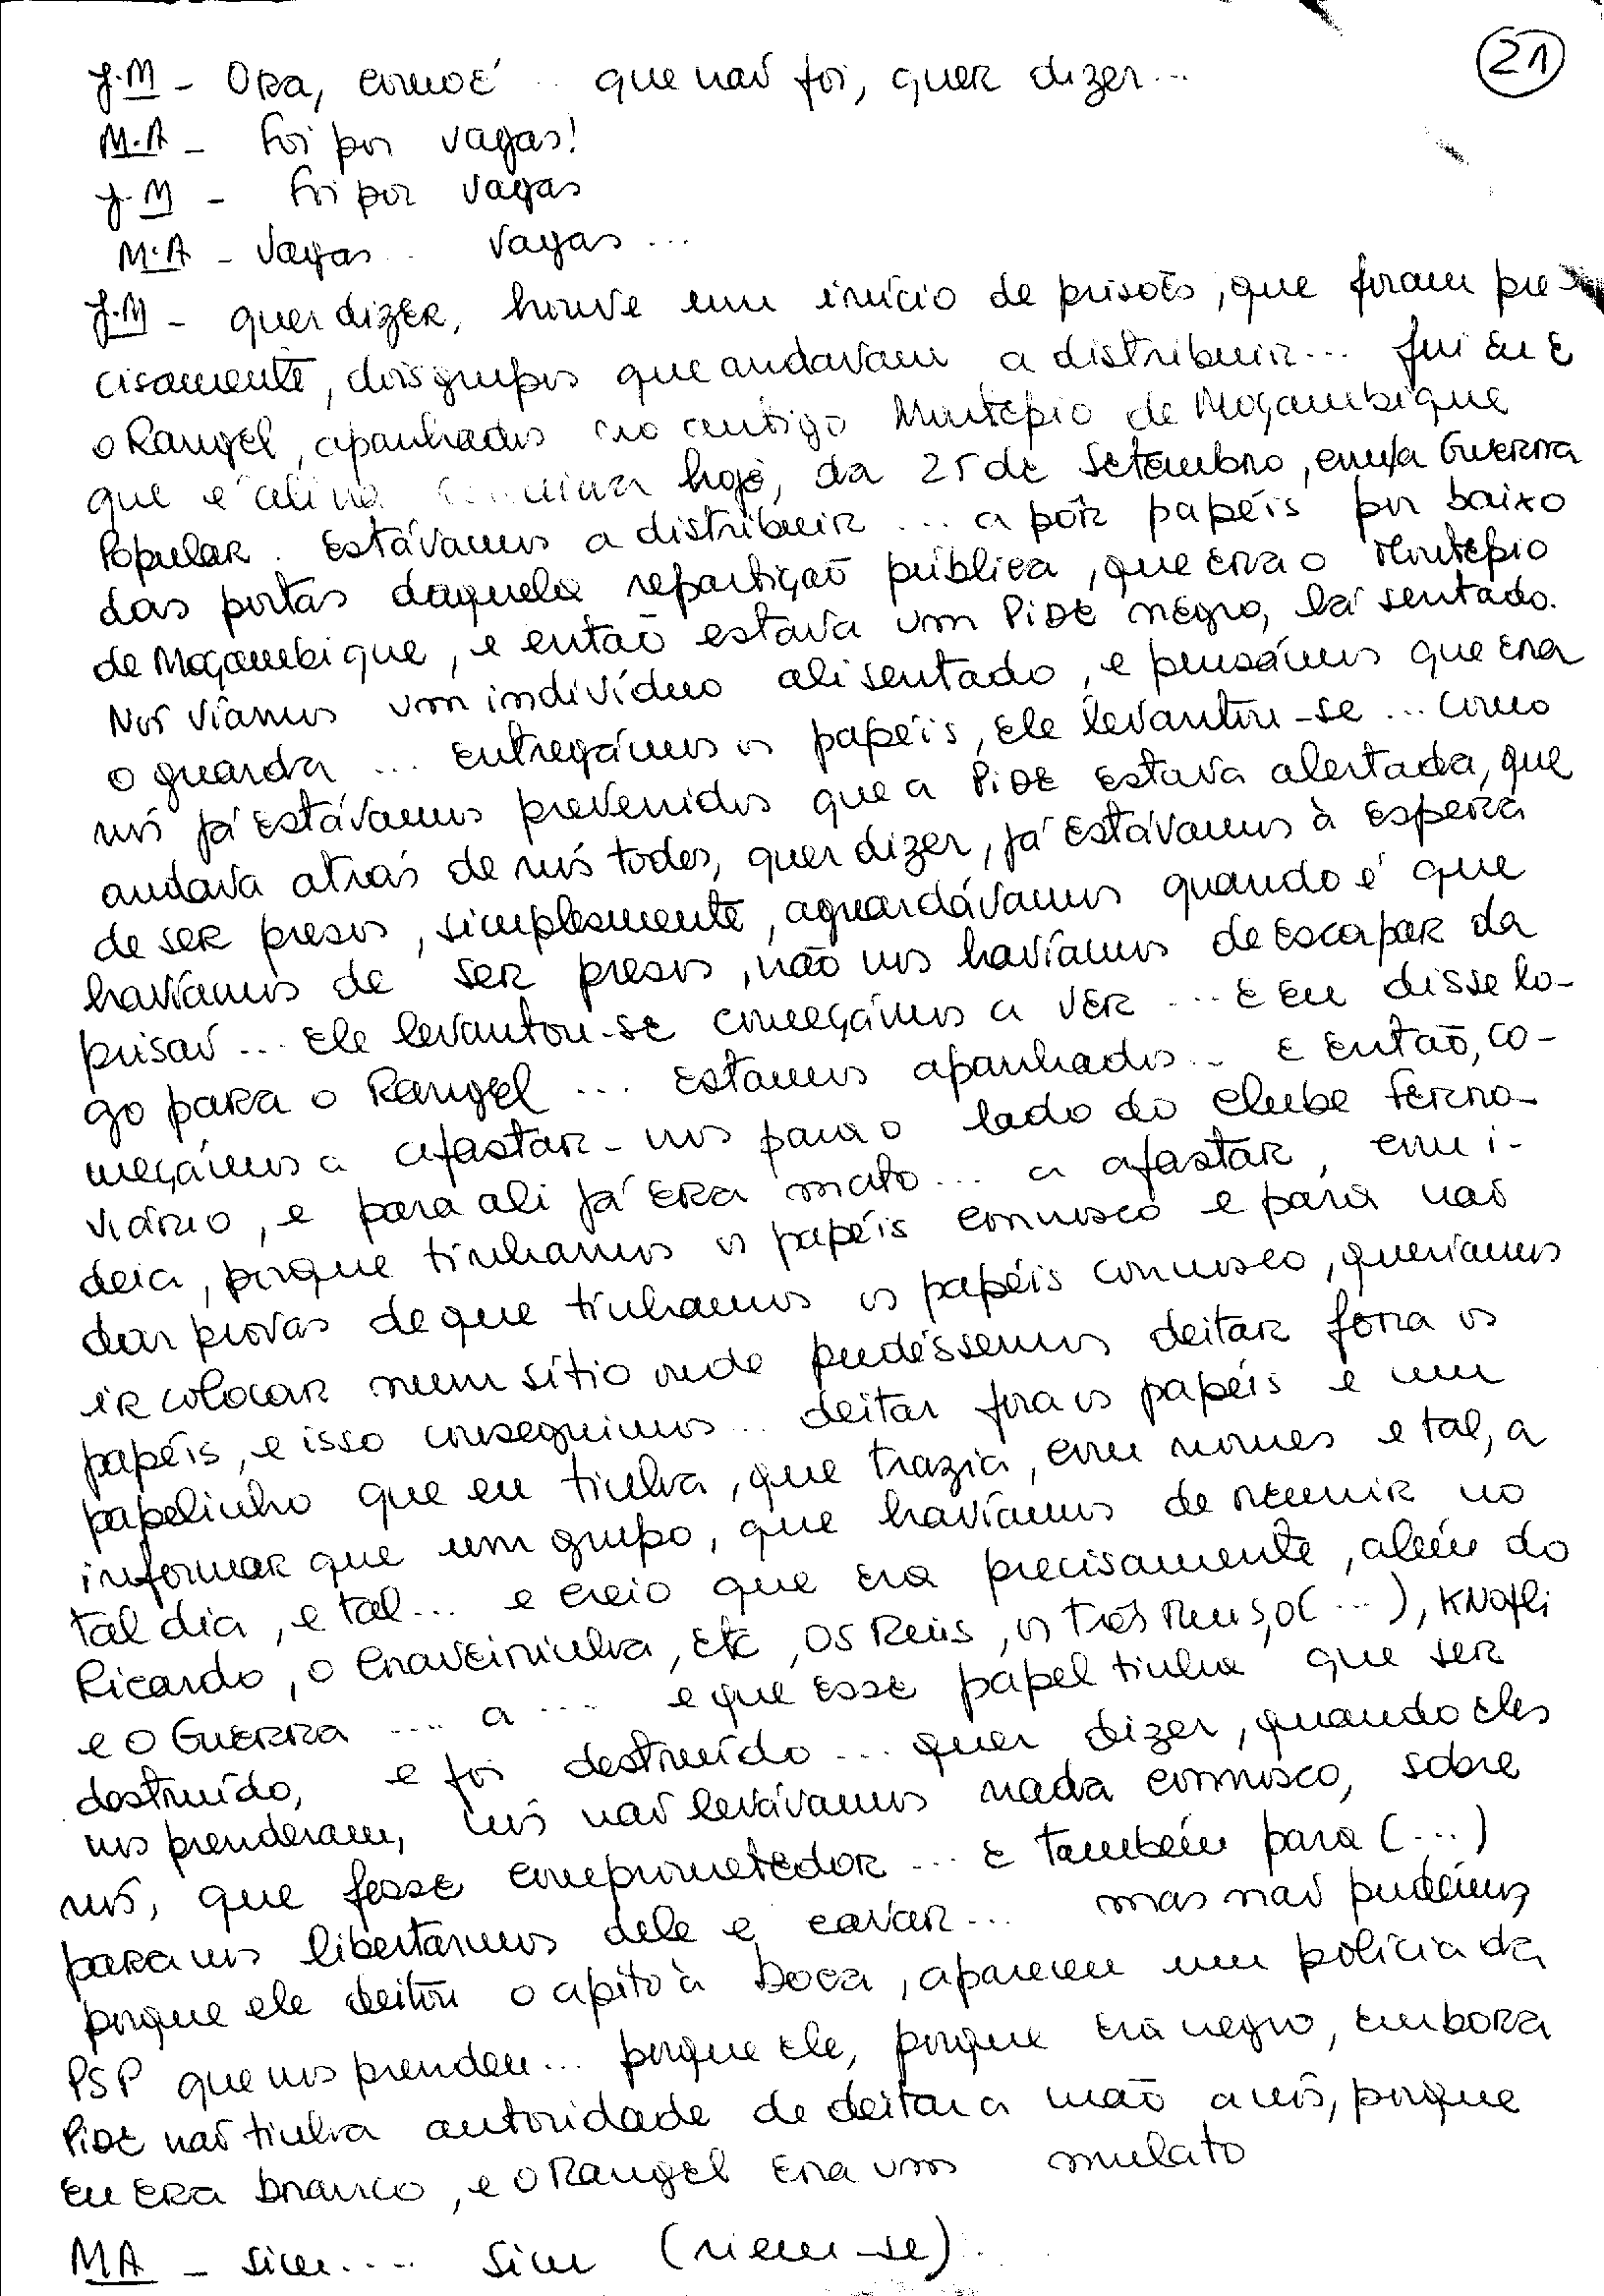 21
J.M - Ora, como é .. que não foi, quer dizer...
M.A - Foi por vagas!
J.M - Foi por vagas
M.A - Vagas.. Vagas...
J.M - quer dizer, houve um início de prisões, que foram pre-
cisamente, dois grupos que andavam a distribuir... fui eu e
o Rangel, apanhados no antigo Montepio de Moçambique
que é ali na hoje, da 25 de Setembro, com a Guerra
Popular. Estávamos a distribuir ... a pôr papéis por baixo
das portas daquela repartição pública, que era o Montepio
de Moçambique, e então estava um PIDE negro, lá sentado.
Nós víamos um indivíduo ali sentado, e pensámos que era
o guarda ... entregámos os papéis, ele levantou-se ... como
nós já estávamos prevenidos que a PIDE estava alertada, que
andava atrás de nós todos, quer dizer, já estávamos à espera
de ser presos, simplesmente, aguardávamos quando é que
havíamos de ser presos, não nos havíamos de escapar da
prisão... Ele levantou-se começámos a ver ... e eu disse lo-
go para o Rangel ... estamos apanhados... e então, co-
meçámos a afastar-nos para o lado do clube ferro-
viário, e para ali já era mato... a afastar, com i-
deia, porque tínhamos os papéis connosco e para não
dar provas de que tínhamos os papéis connosco, queríamos
ir colocar num sítio onde pudéssemos deitar fora os
papéis, e isso conseguimos... deitar fora os papéis e um
papelinho que eu tinha, que trazia, com nomes e tal, a
informar que um grupo, que havíamos de reunir no
tal dia, e tal... e creio que era precisamente, além do
Ricardo, o Craveirinha, etc, os Reis, os três Reus, o (...), Knofli
e o Guerra .... a .... e que esse papel tinha que ser
destruído, e foi destruído... quer dizer, quando eles
nos prenderam, nós não levávamos nada connosco, sobre
nós, que fosse comprometedor ... e também para (...)
para nos libertarmos dele e cavar... mas não pudémos
porque ele deitou o apito à boca, apareceu um polícia da
PSP que nos prendeu... porque ele, porque era negro, embora
PIDE não tinha autoridade de deitar a mão a nós, porque
eu era branco, e o Rangel era um mulato
MA - sim.... sim (riem-se).